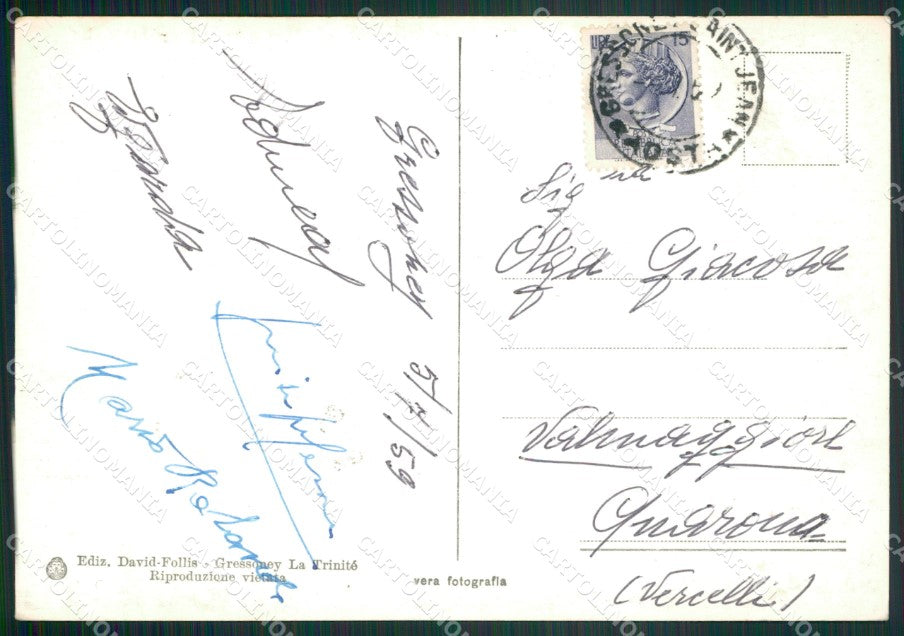 Gressoney 5/7/59
LIRE 15
GRESSONEY SAINT JEAN
AOSTA
Sig.na
Olga Giacosa
Valmaggiore
Quarona
(Vercelli)
Mario
Ediz. David-Follis - Gressoney La Trinité
Riproduzione vietata
vera fotografia
CARTOLINOMANIA